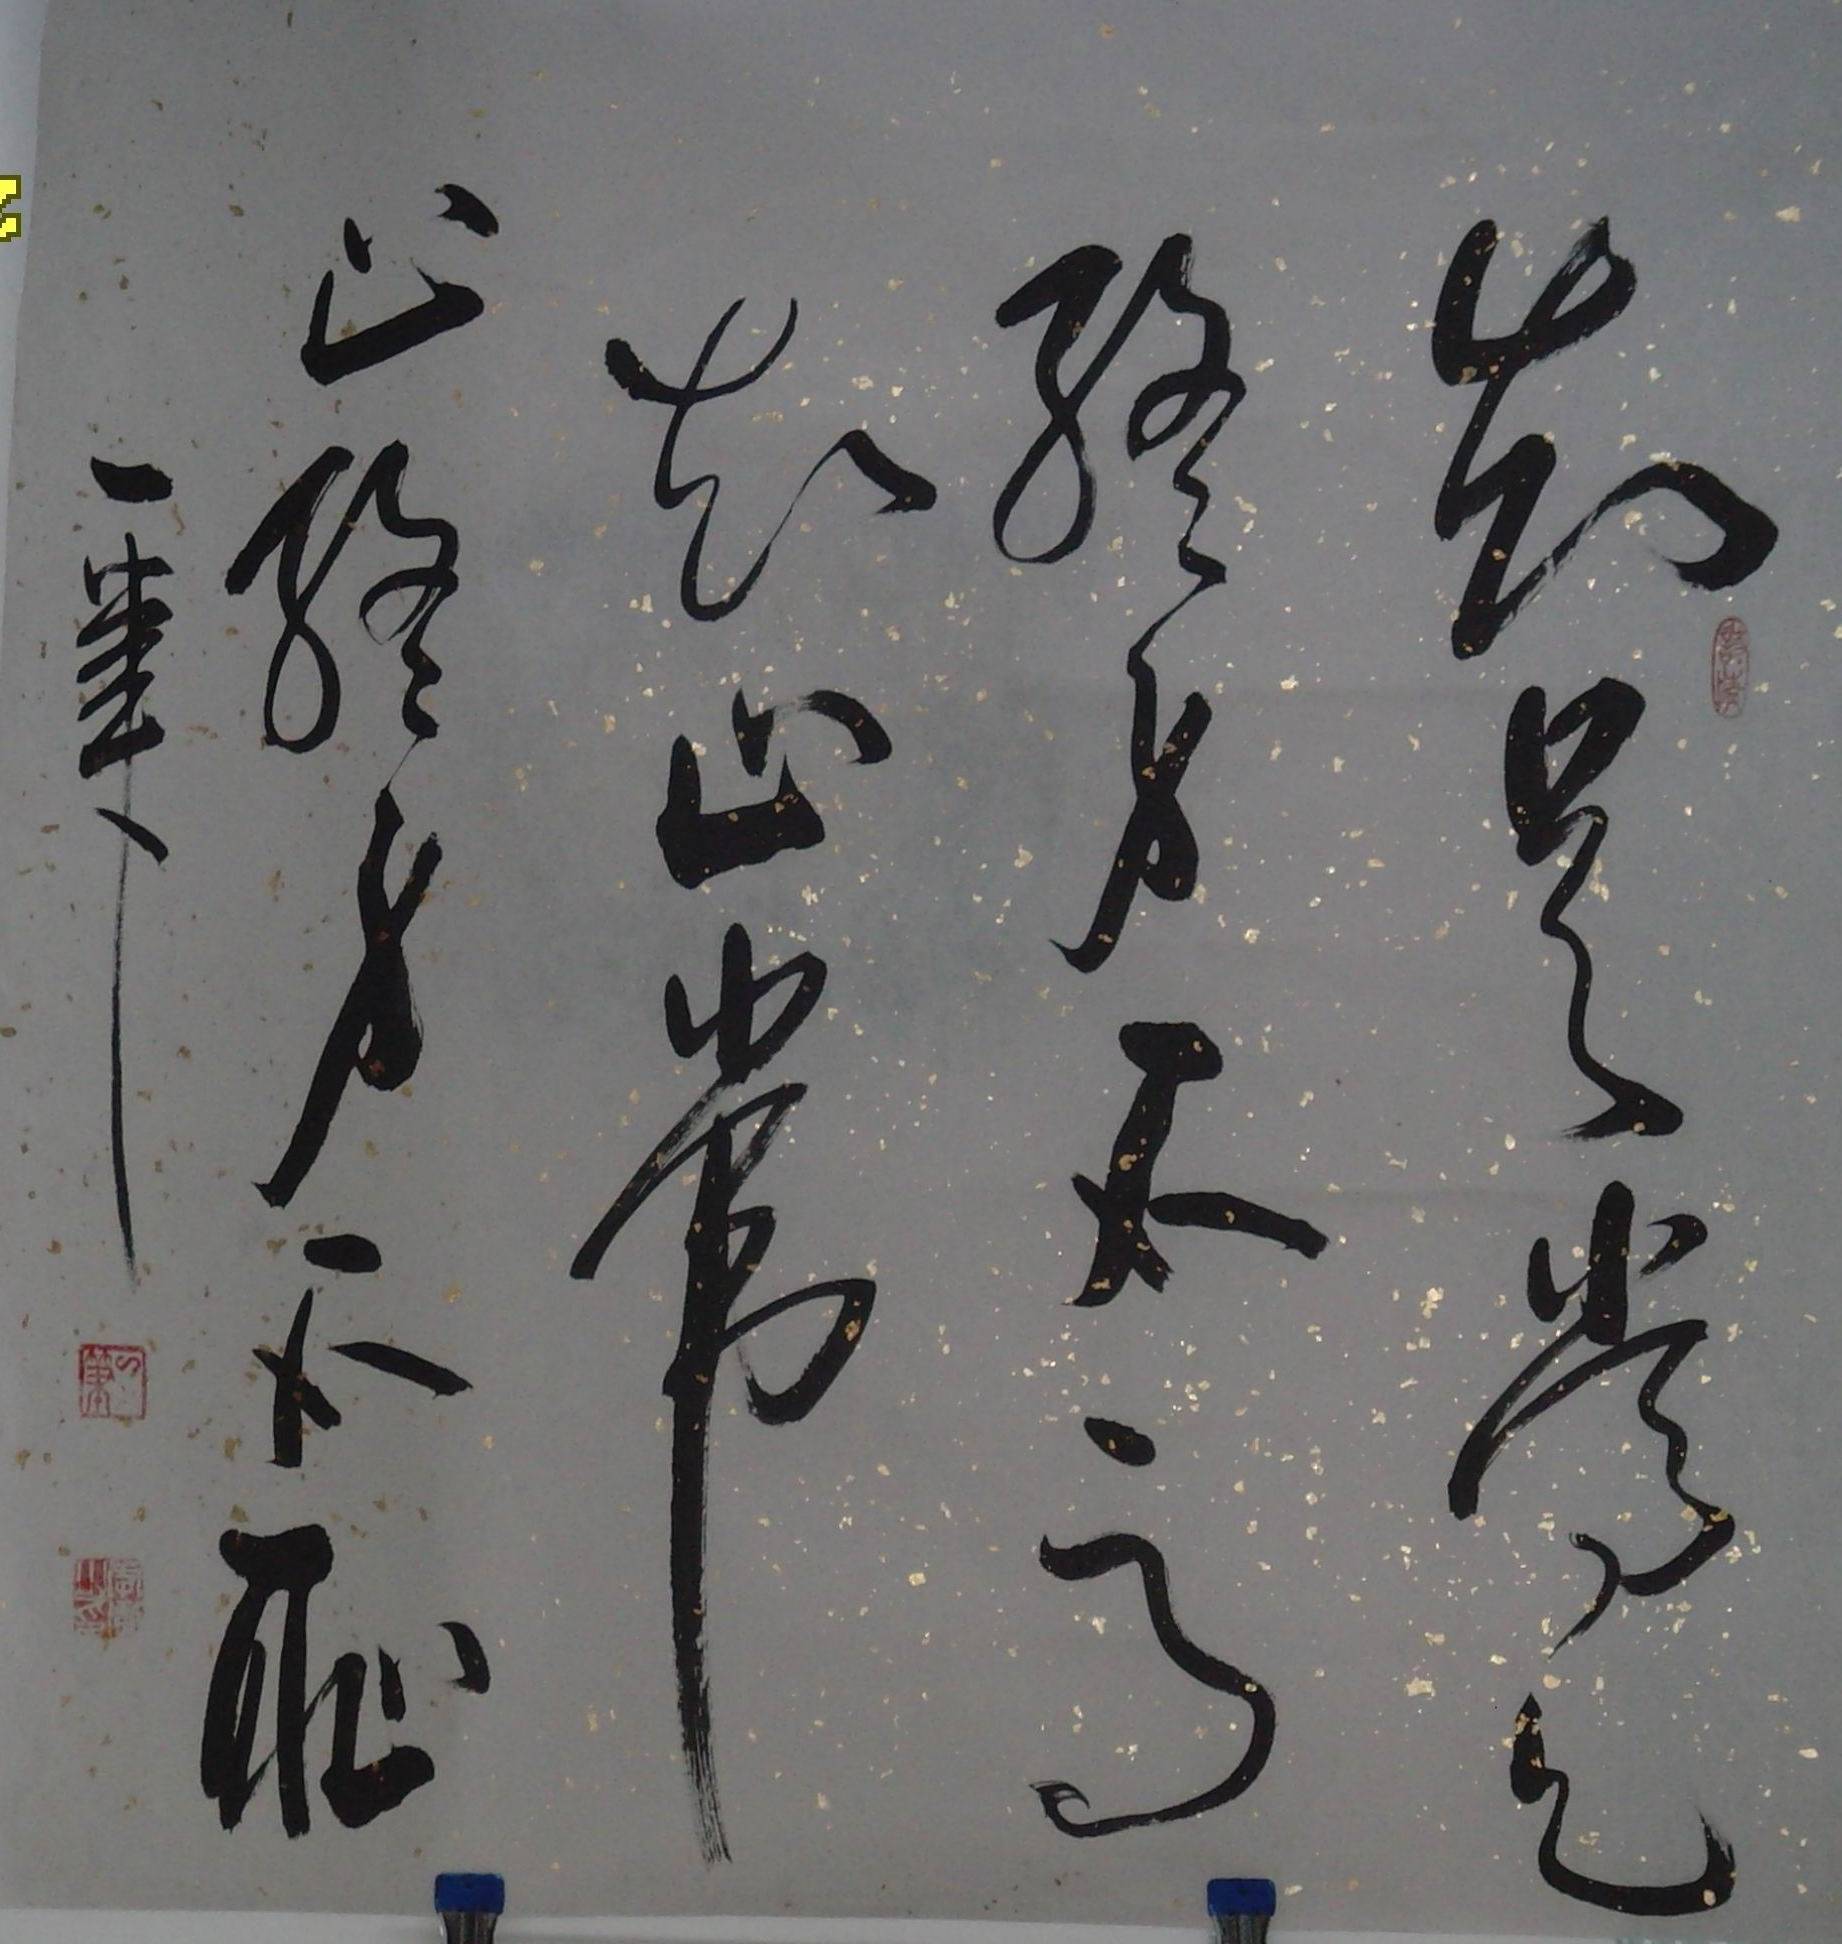 知足常足
終身不辱
知止常
止終身不耻
一葦